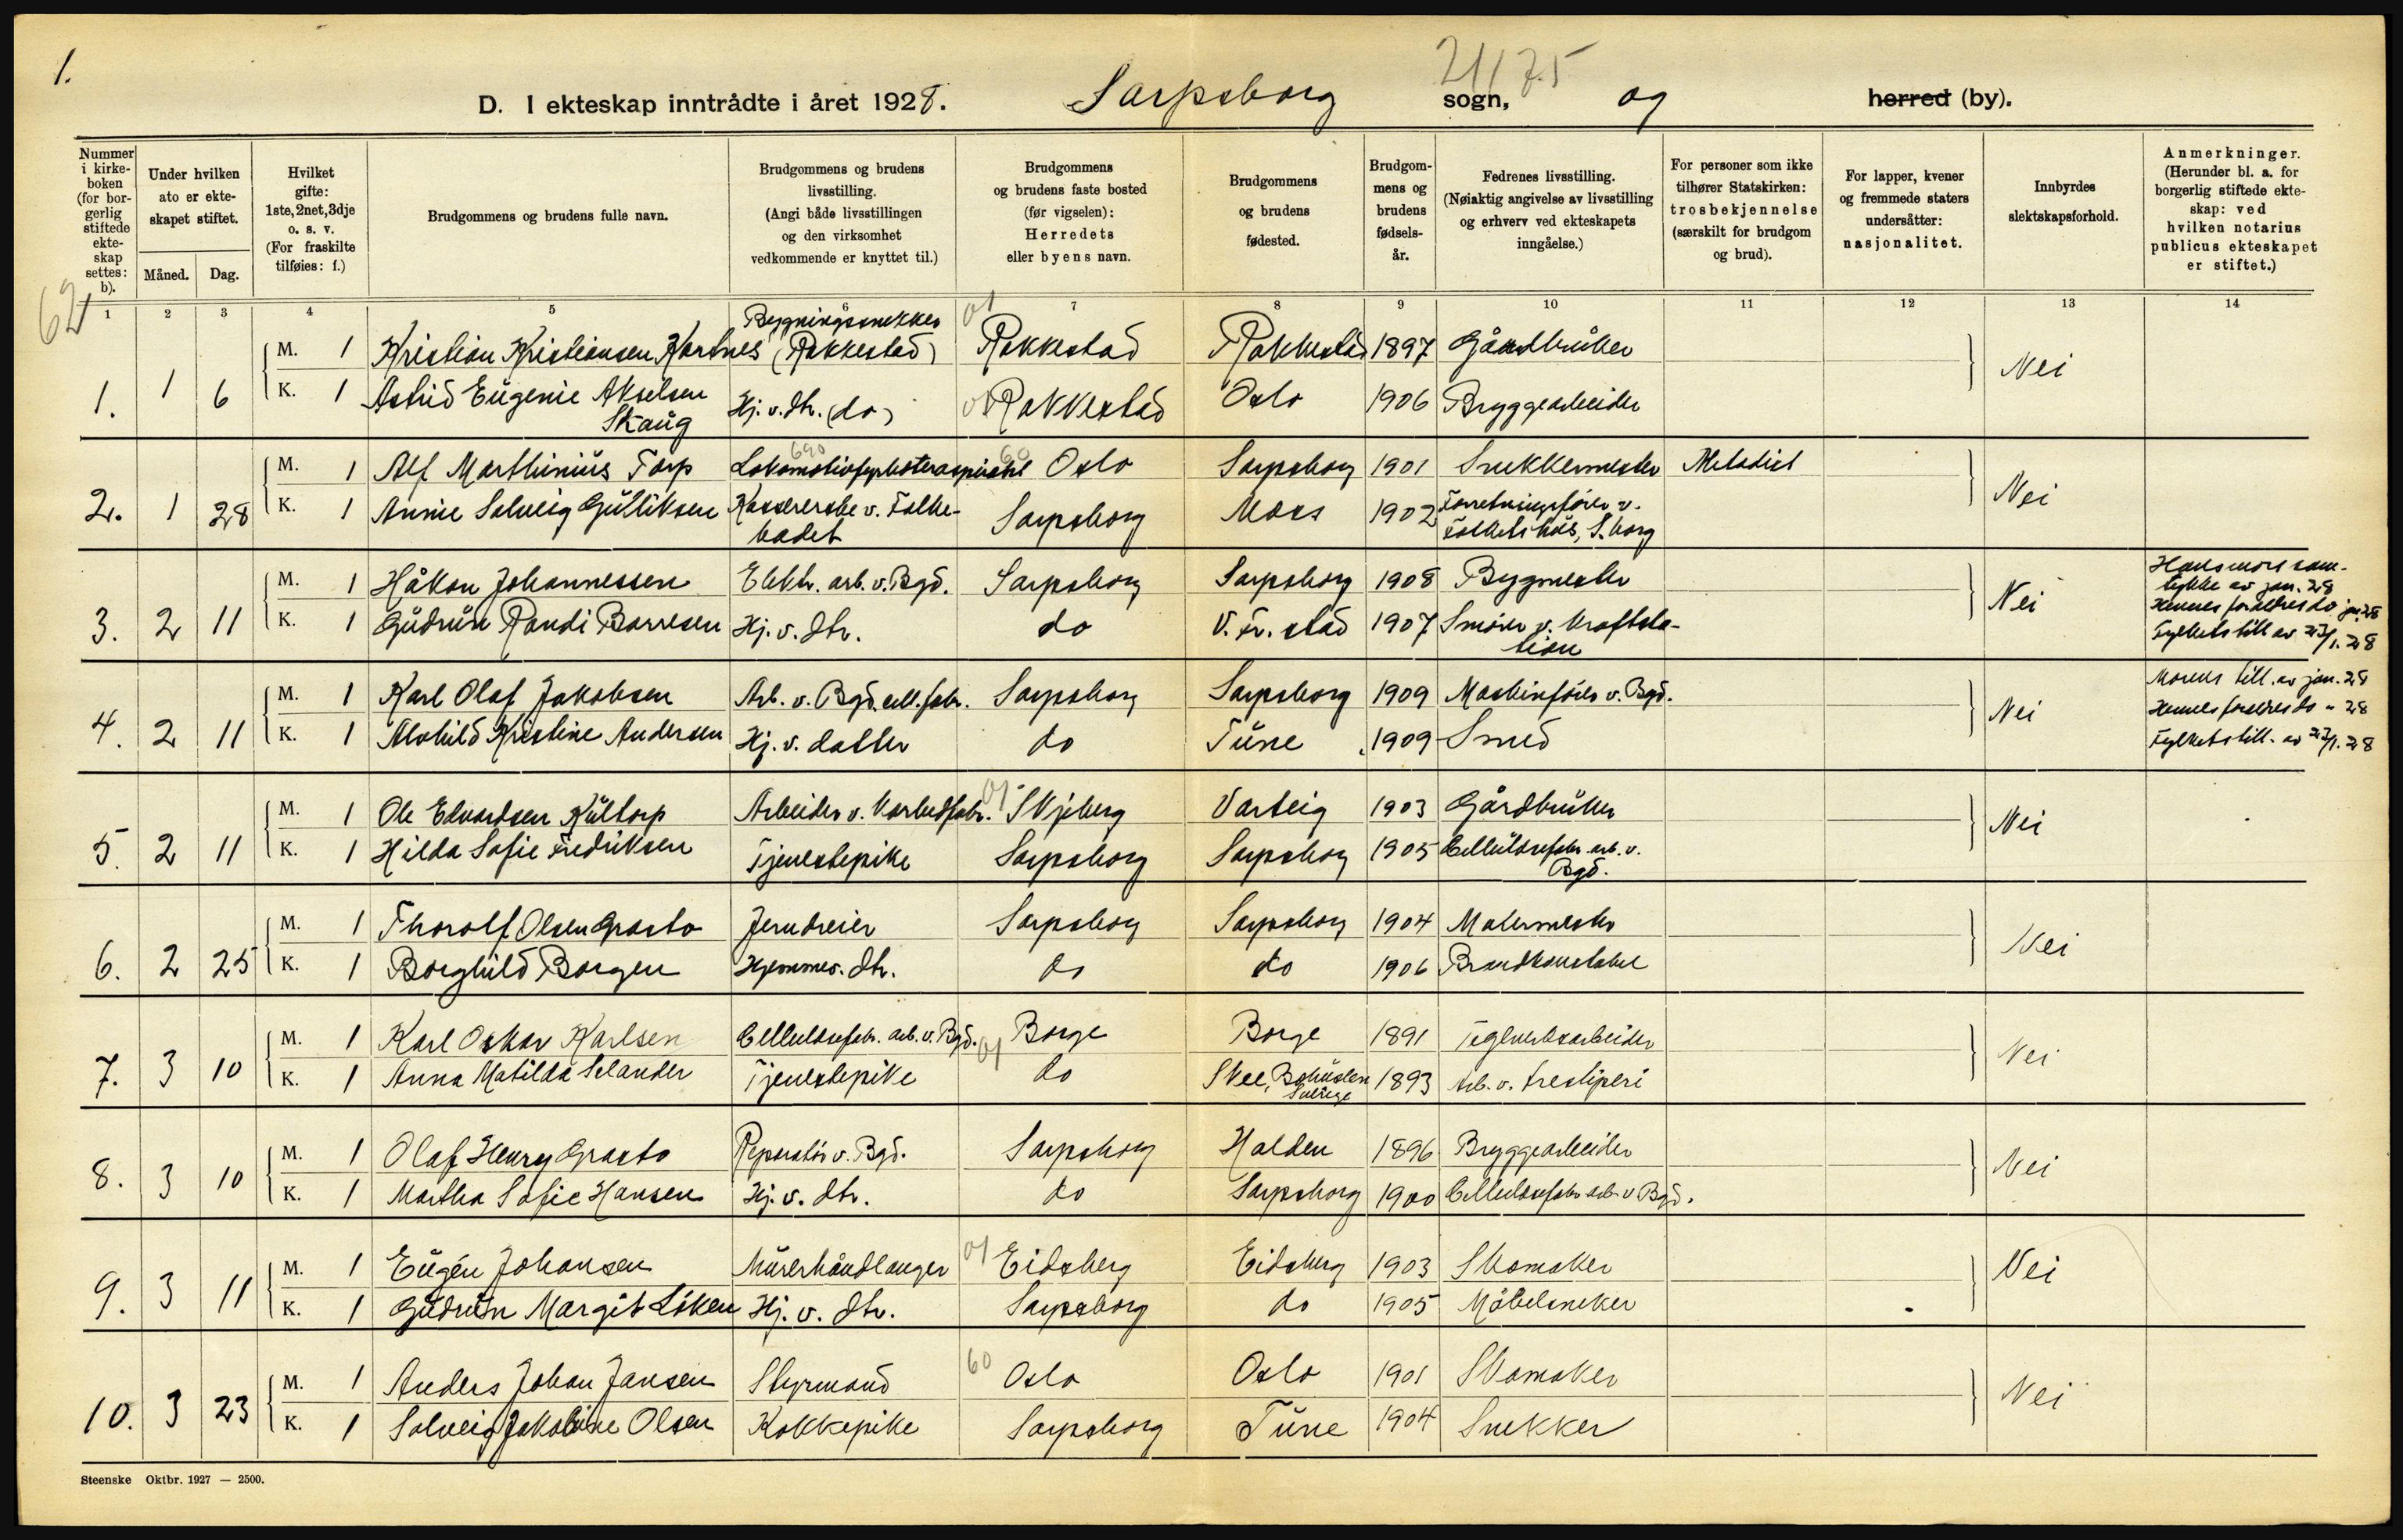 1.
21175
D. I ekteskap inntrådte i året 1928. Sarpsborg sogn, og herred (by).
Nummer i kirkeboken (for borgerlig stiftede ekteskap settes: b).
Under hvilken dato er ekteskapet stiftet.
Måned. Dag.
Hvilket gifte: 1ste, 2net, 3dje o. s. v. (For fraskilte tilføies: f.)
Brudgommens og brudens fulle navn.
Brudgommens og brudens livsstilling. (Angi både livsstillingen og den virksomhet vedkommende er knyttet til.)
Brudgommens og brudens faste bosted (før vigselen): Herredets eller byens navn.
Brudgommens og brudens fødested.
Brudgommens og brudens fødselsår.
Fedrenes livsstilling. (Nøiaktig angivelse av livsstilling og erhverv ved ekteskapets inngåelse.)
For personer som ikke tilhører Statskirken: trosbekjennelse (særskilt for brudgom og brud).
For lapper, kvener og fremmede staters undersåtter: nasjonalitet.
Innbyrdes slektskapsforhold.
Anmerkninger. (Herunder bl. a. for borgerlig stiftede ekteskap: ved hvilken notarius publicus ekteskapet er stiftet.)
62
1 2 3 4 5 6 7 8 9 10 11 12 13 14
Bygningssnekker
M. 1 Kristian Kristiansen Kartnes (Rakkestad) 01 Rakkestad Rakkestad 1897 Gårdbruker
1. 1 6 K. 1 Astrid Eugenie Akselsen Hj. v. dtr. (do) 01 Rakkestad Oslo 1906 Bryggearbeider Nei
Skaug
M. 1 Alf Marthinius Torp Lokomotivfyrbøteraspirant 690 60 Oslo Sarpsborg 1901 Snekkermester Metodist
2. 1 28 K. 1 Annie Solveig Gulliksen Kassererske v. Folke- Sarpsborg Moss 1902 Forretningsfører v. Nei
badet Folkets hus, S.borg
M. 1 Håkon Johannessen Elektr. arb. v. Bgd. Sarpsborg Sarpsborg 1908 Bygmester Hans mors sam-
tykke av jan. 28
3. 2 11 K. 1 Gudrun Randi Borresen Hj. v. dtr. do V. Fr. stad 1907 Smører v. kraftsta- Nei Hennes foreldres do jan. 28
tion Fylkets till av 27/1. 28
M. 1 Karl Olaf Jakobsen Arb. v. Bgd. cell. fabr. Sarpsborg Sarpsborg 1909 Maskinfører v. Bgd. Morens till. av jan. 28
4. 2 11 K. 1 Alvhild Kristine Andersen Hj. v. datter do Tune 1909 Smed Nei Hennes foreldres do " 28
Fylkets till. av 27/1. 28
M. 1 Ole Edvardsen Kultorp Arbeider v. karbidfabr. 01 Skjeberg Varteig 1903 Gårdbruker
5. 2 11 K. 1 Hilda Sofie Fredriksen Tjenestepike Sarpsborg Sarpsborg 1905 Cellulosefabr. arb. v. Nei
Bgd.
M. 1 Thorolf Olsen Grasto Jerndreier Sarpsborg Sarpsborg 1904 Malermester
6. 2 25 K. 1 Borghild Borgen Hjemmev. dtr. do do 1906 Brandkonstabel Nei
M. 1 Karl Oskar Karlsen Cellulosefabr. arb. v. Bgd. 01 Borge Borge 1891 Teglverksarbeider
7. 3 10 K. 1 Anna Matilda Selander Tjenestepike do Skee, Bohuslen 1893 Arb. v. tresliperi Nei
Sverige
M. 1 Olaf Henry Grasto Reparatør v. Bgd. Sarpsborg Halden 1896 Bryggearbeider
8. 3 10 K. 1 Martha Sofie Hansen Hj. v. dtr. do Sarpsborg 1900 Cellulosefabr. arb. v Bgd. Nei
M. 1 Eugén Johansen Murerhåndlanger 01 Eidsberg Eidsberg 1903 Skomaker
9. 3 11 K. 1 Gudrun Margit Løken Hj. v. dtr. Sarpsborg do 1905 Møbelsneker Nei
M. 1 Anders Johan Jansen Styrmand 60 Oslo Oslo 1901 Skomaker
10. 3 23 K. 1 Solveig Jakobine Olsen Kokkepike Sarpsborg Tune 1904 Snekker Nei
Steenske Oktbr. 1927 — 2500.